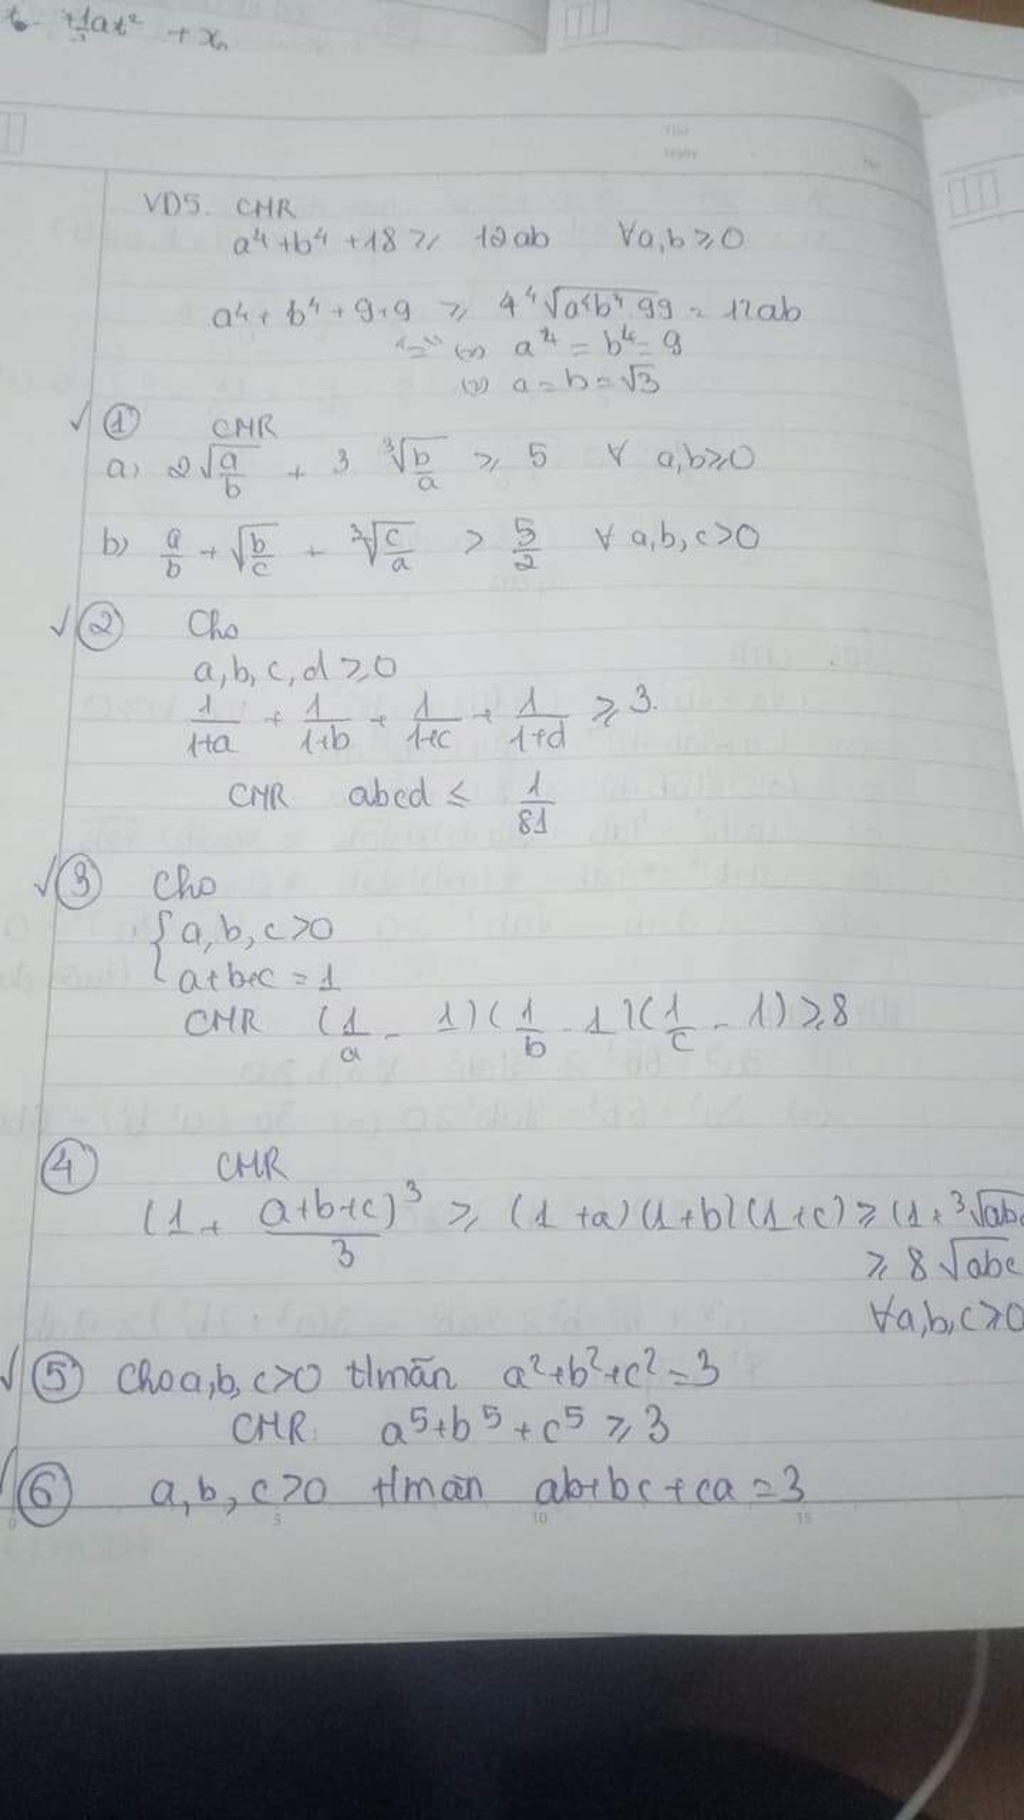 + xₙ
Thứ
Ngày
No
VD5. CMR
a⁴ + b⁴ + 18 ≥ 12ab ∀a,b ≥ 0
a⁴ + b⁴ + 9 + 9 ≥ 4 ⁴√a⁴b⁴99 = 12ab
"=" (=) a⁴ = b⁴ = 9
(=) a = b = √3
√ ① CMR
a) 2√(a/b) + 3 ³√(b/a) ≥ 5 ∀ a,b ≥ 0
b) a/b + √(b/c) + ³√(c/a) > 5/2 ∀ a,b,c > 0
√ ② Cho
a, b, c, d ≥ 0
1/(1+a) + 1/(1+b) + 1/(1+c) + 1/(1+d) ≥ 3.
CMR abcd ≤ 1/81
√ ③ Cho
{ a, b, c > 0
a+b+c = 1
CMR (1/a - 1)(1/b - 1)(1/c - 1) ≥ 8
④ CMR
(1 + (a+b+c)/3)³ ≥ (1+a)(1+b)(1+c) ≥ (1+ ³√abc
≥ 8√abc
∀a,b,c ≥ 0
√ ⑤ Cho a,b,c > 0 t/mãn a² + b² + c² = 3
CMR: a⁵ + b⁵ + c⁵ ≥ 3
√ ⑥ a, b, c > 0 t/mãn ab + bc + ca = 3
5 10 15